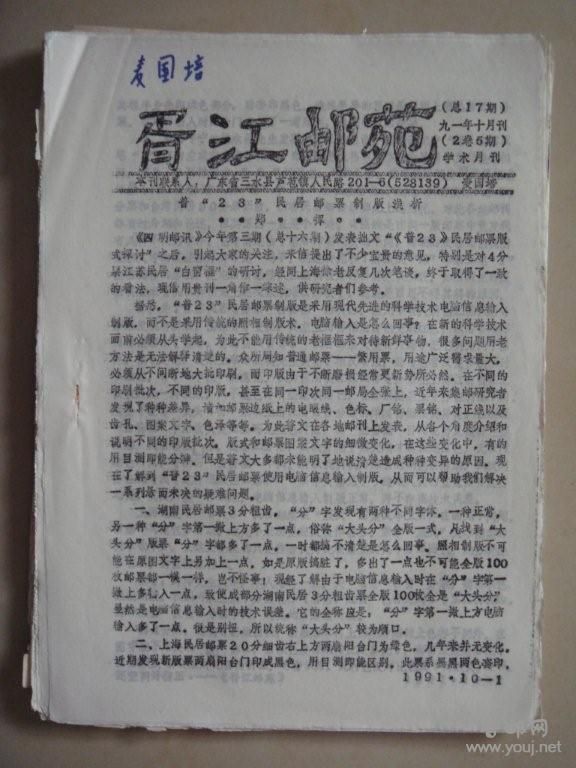 麦国培
胥江邮苑
(总17期)
九一年十月刊
(2卷5期)
学术月刊
本刊联系人，广东省三水县芦苞镇人民路201—6(528139) 麦国培
普“23”民居邮票制版浅析
••郑••挥••
《四明邮讯》今年第三期(总十六期)发表拙文“《普23》民居邮票版
式探讨”之后，引起大家的关注，来信提出了不少宝贵的意见，特别是对4分
票江苏民居“白窗框”的研讨，经同上海徐老反复几次笔谈，终于取得了一致
的看法，现借用贵刊一角作一综述，供研究者们参考。
据悉，“普23”民居邮票制版是采用现代先进的科学技术电脑信息输入
制版，而不是采用传统的照相制版术。电脑输入是怎么回事？在新的科学技术
面前必须从头学起，为此不能用传统的老框框来对待新鲜事物，很多问题用老
方法是无法解释清楚的。众所周知普通邮票——常用票，用途广泛需求量大，
必须从不间断地大批印刷。而印版由于不断磨损经常更新势所必然。在不同的
印刷批次，不同的印版，甚至在同一印次同一邮局全张上，近年来集邮研究者
发现了种种差异，诸如邮票边纸上的电眼线、色标、厂铭、票铭、对正线以及
齿孔、图案文字、色泽等等。为此普文在各地邮刊上发表，从各个角度介绍和
说明不同的印版批次。版式和邮票图案文字的细微变化，在这些变化中，有的
用目测即能分辨。但是普文大多都未能明了地说清楚造成种种变异的原因。现
在了解到“普23”民居邮票使用电脑信息输入制版，从而可以帮助我们解决
一系列悬而未决的疑难问题。
一、湖南民居邮票3分粗齿，“分”字发现有两种不同字体，一种正常，
另一种“分”字第一撇上方多了一点，俗称“大头分”全版一式，凡找到“大
头分”版票“分”字都多了一点。一时都搞不清楚是怎么回事。照相制版不可
能在原图文字上另加上一点，如是原版搞脏了，多出了一点也不可能全版100
枚邮票都一模一样，也不怪事；现经了解由于电脑信息输入时在“分”字第一
撇上多输入一点，致使成部分湖南民居3分粗齿票全版100枚全是“大头分”
显然是电脑信息输入时的技术误差。它的全称应是，“分”字第一撇上方电脑
输入多了一点。很是别扭，所以统称“大头分”较为顺口。
二、上海民居邮票20分细齿右上方两扇阳台门为绿色，几年来并无变化，
近期发现新版票两扇阳台门印成黑色，用目测即能区别，此票系黑黑两色套印，
1991·10—1
邮网
www.youj.net